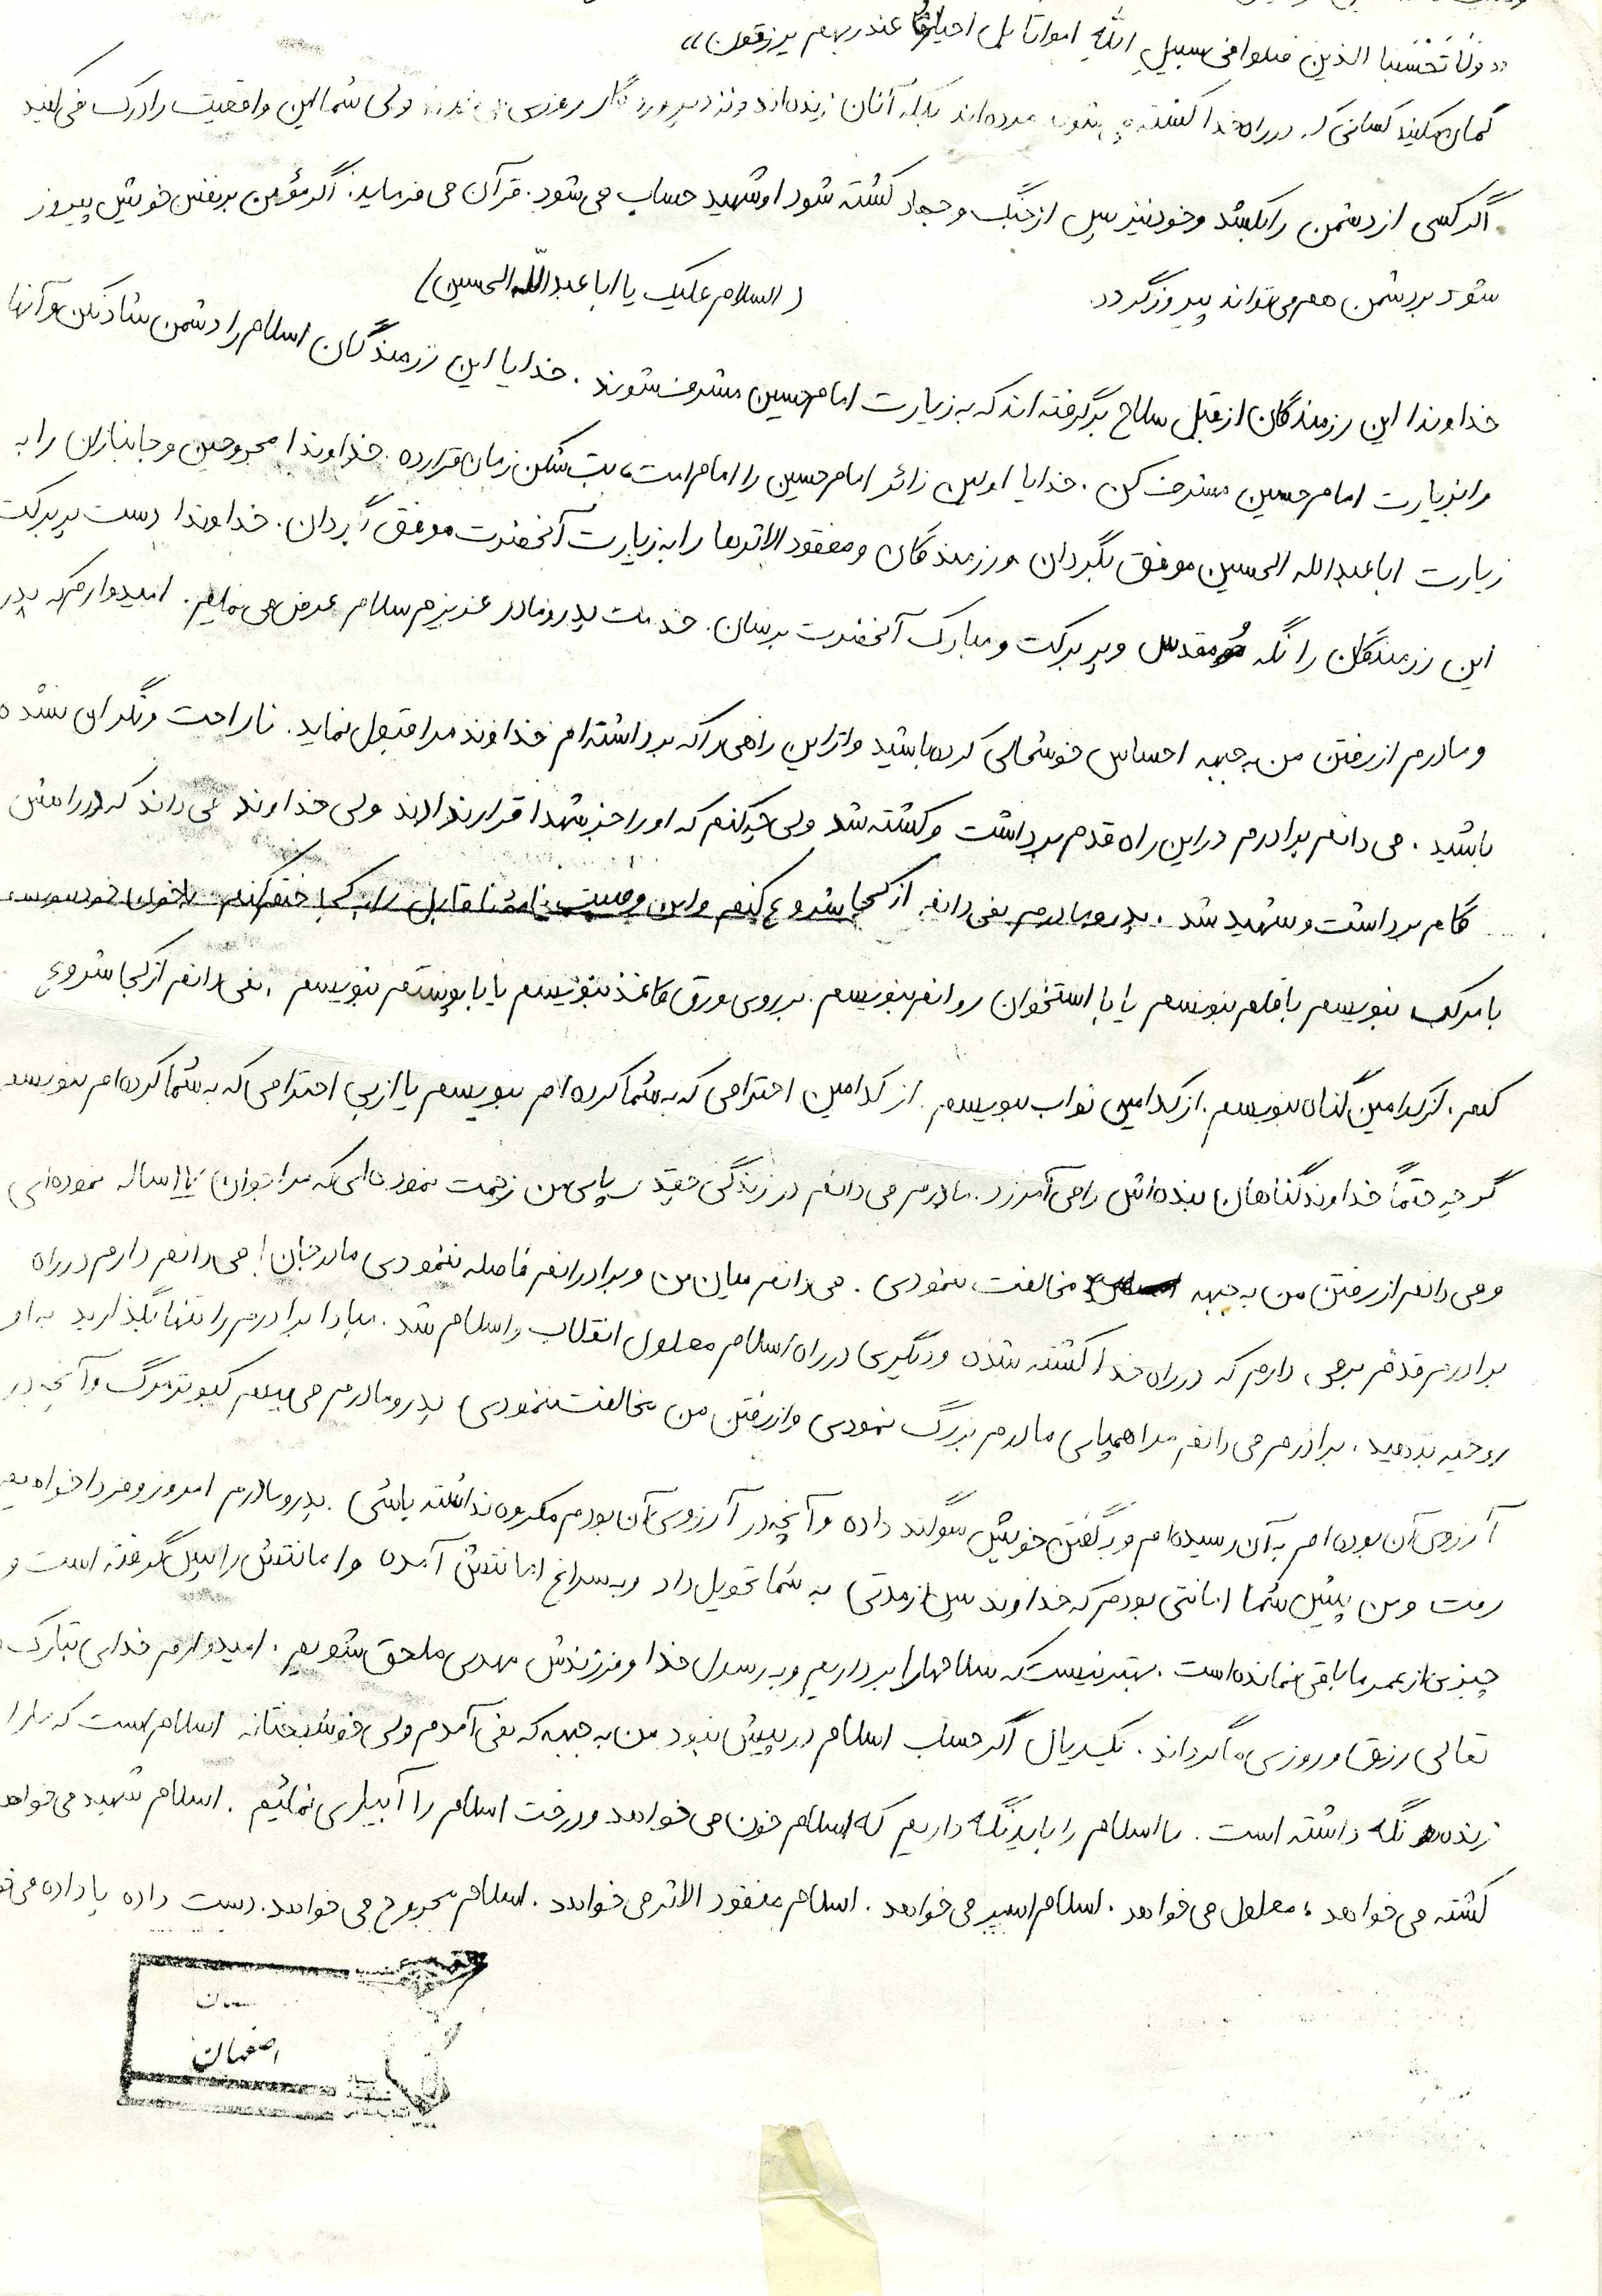 «ولا تَحْسَبَنا الذین قتلوا فی سبیلِ اللهِ امواتا بل احیاءٌ عند ربهم یرزقون»
گمان مکنید کسانی که در راه خدا کشته می‌شوند مرده‌اند بلکه آنان زنده‌اند و نزد پروردگار روزی می‌خورند ولی شما این واقعیت را درک نمی‌کنید
اگر کسی از دشمن را بکشد و خود نیز پس از جنگ و جهاد کشته شود او شهید حساب می‌شود. قرآن می‌فرماید: اگر مؤمن بر نفس خویش پیروز
شود بر دشمن هم می‌تواند پیروز گردد.
(السلام علیک یا ابا عبدالله الحسین)
خداوندا این رزمندگان از قبل سلاح برگرفته‌اند که به زیارت امام حسین مشرف شوند. خدایا این رزمندگان اسلام را دشمن شاد نکن و آنها
را بزیارت امام حسین مشرف کن. خدایا اولین زائر امام حسین را امام امت، بت شکن زمان قرار ده. خداوندا مجروحین و جانبازان را به
زیارت اباعبدالله الحسین موفق بگردان و رزمندگان و مفقودالاثرها را به زیارت آنحضرت موفق گردان. خداوندا دست پر برکت
این رزمندگان را نگه مقدس و پر برکت و مبارک آنحضرت برسان. خدمت پدر و مادر عزیزم سلام عرض می‌نمایم. امیدوارم که پدر
و مادرم از رفتن من به جبهه احساس خوشحالی کرده باشید و از این راهی را که برداشته‌ام خداوند مرا قبول نماید. ناراحت و نگران نشده
باشید. می‌دانم برادرم در این راه قدم برداشت و کشته شد ولی چه کنم که او را جزء شهدا قرار ندادند ولی خداوند می‌داند که در راهش
گام برداشت و شهید شد. پدر و مادرم نمی‌دانم از کجا شروع کنم و این وصیت نامه ناقابل را به کجا ختم کنم با خون خود بنویسم
با مرکب بنویسم با قلم بنویسم یا با استخوان روانم بنویسم. بر روی ورق کاغذ بنویسم یا با پوستم بنویسم. نمی‌دانم از کجا شروع
کنم. از کدامین گناه بنویسم. از کدامین ثواب بنویسم. از کدامین احترامی که به شما کرده‌ام بنویسم یا از بی احترامی که به شما کرده‌ام بنویسم
گرچه حتماً خداوند گناهان بنده‌اش را می‌آمرزد. مادرم می‌دانم در زندگی چقدر به پای من زحمت نموده‌ای که مرا جوان ساله نموده‌ای
و می‌دانم از رفتن من به جبهه مخالفت ننمودی. می‌دانم میان من و برادرانم فاصله ننمودی مادر جان! می‌دانم دارم در راه
برادرم قدم می‌ دارم که در راه خدا کشته شده و دیگری در راه اسلام معلول انقلاب و اسلام شد. مبادا برادرم را تنها بگذارید به او
روحیه بدهید. برادرم می‌دانم مرا همپای مادرم بزرگ نمودی و از رفتن من مخالفت ننمودی پدر و مادرم می‌بینم کبوتر مرگ و آنچه در
آرزوی آن بوده‌ام به آن رسیده‌ام و به گفتن خویش سوگند داده و آنچه در آرزوی آن بودم مکروه نداشته باشی. پدر و مادرم امروز و فردا خواهیم
رفت و من پیش شما امانتی بودم که خداوند پس از مدتی به شما تحویل داد و به سراغ امانتش آمده و امانتش را پس گرفته است و
چیزی از عمر ما باقی نمانده است. بهتر نیست که سلاحها را برداریم و به رسول خدا و فرزندش مهدی ملحق شویم. امیدوارم خدای تبارک
تعالی رزق و روزی ما گرداند. یک ریال اگر حساب اسلام در پیش نبود من به جبهه که نمی‌آمدم ولی خوشبختانه اسلام است که ما را
زنده نگه داشته است. ما اسلام را باید نگه داریم که اسلام خون می‌خواهد و درخت اسلام را آبیاری نمائیم. اسلام شهید می‌خواهد
کشته می‌خواهد، معلول می‌خواهد. اسلام اسیر می‌خواهد. اسلام مفقودالاثر می‌خواهد. اسلام مجروح می‌خواهد. دست داده پا داده
اصفهان